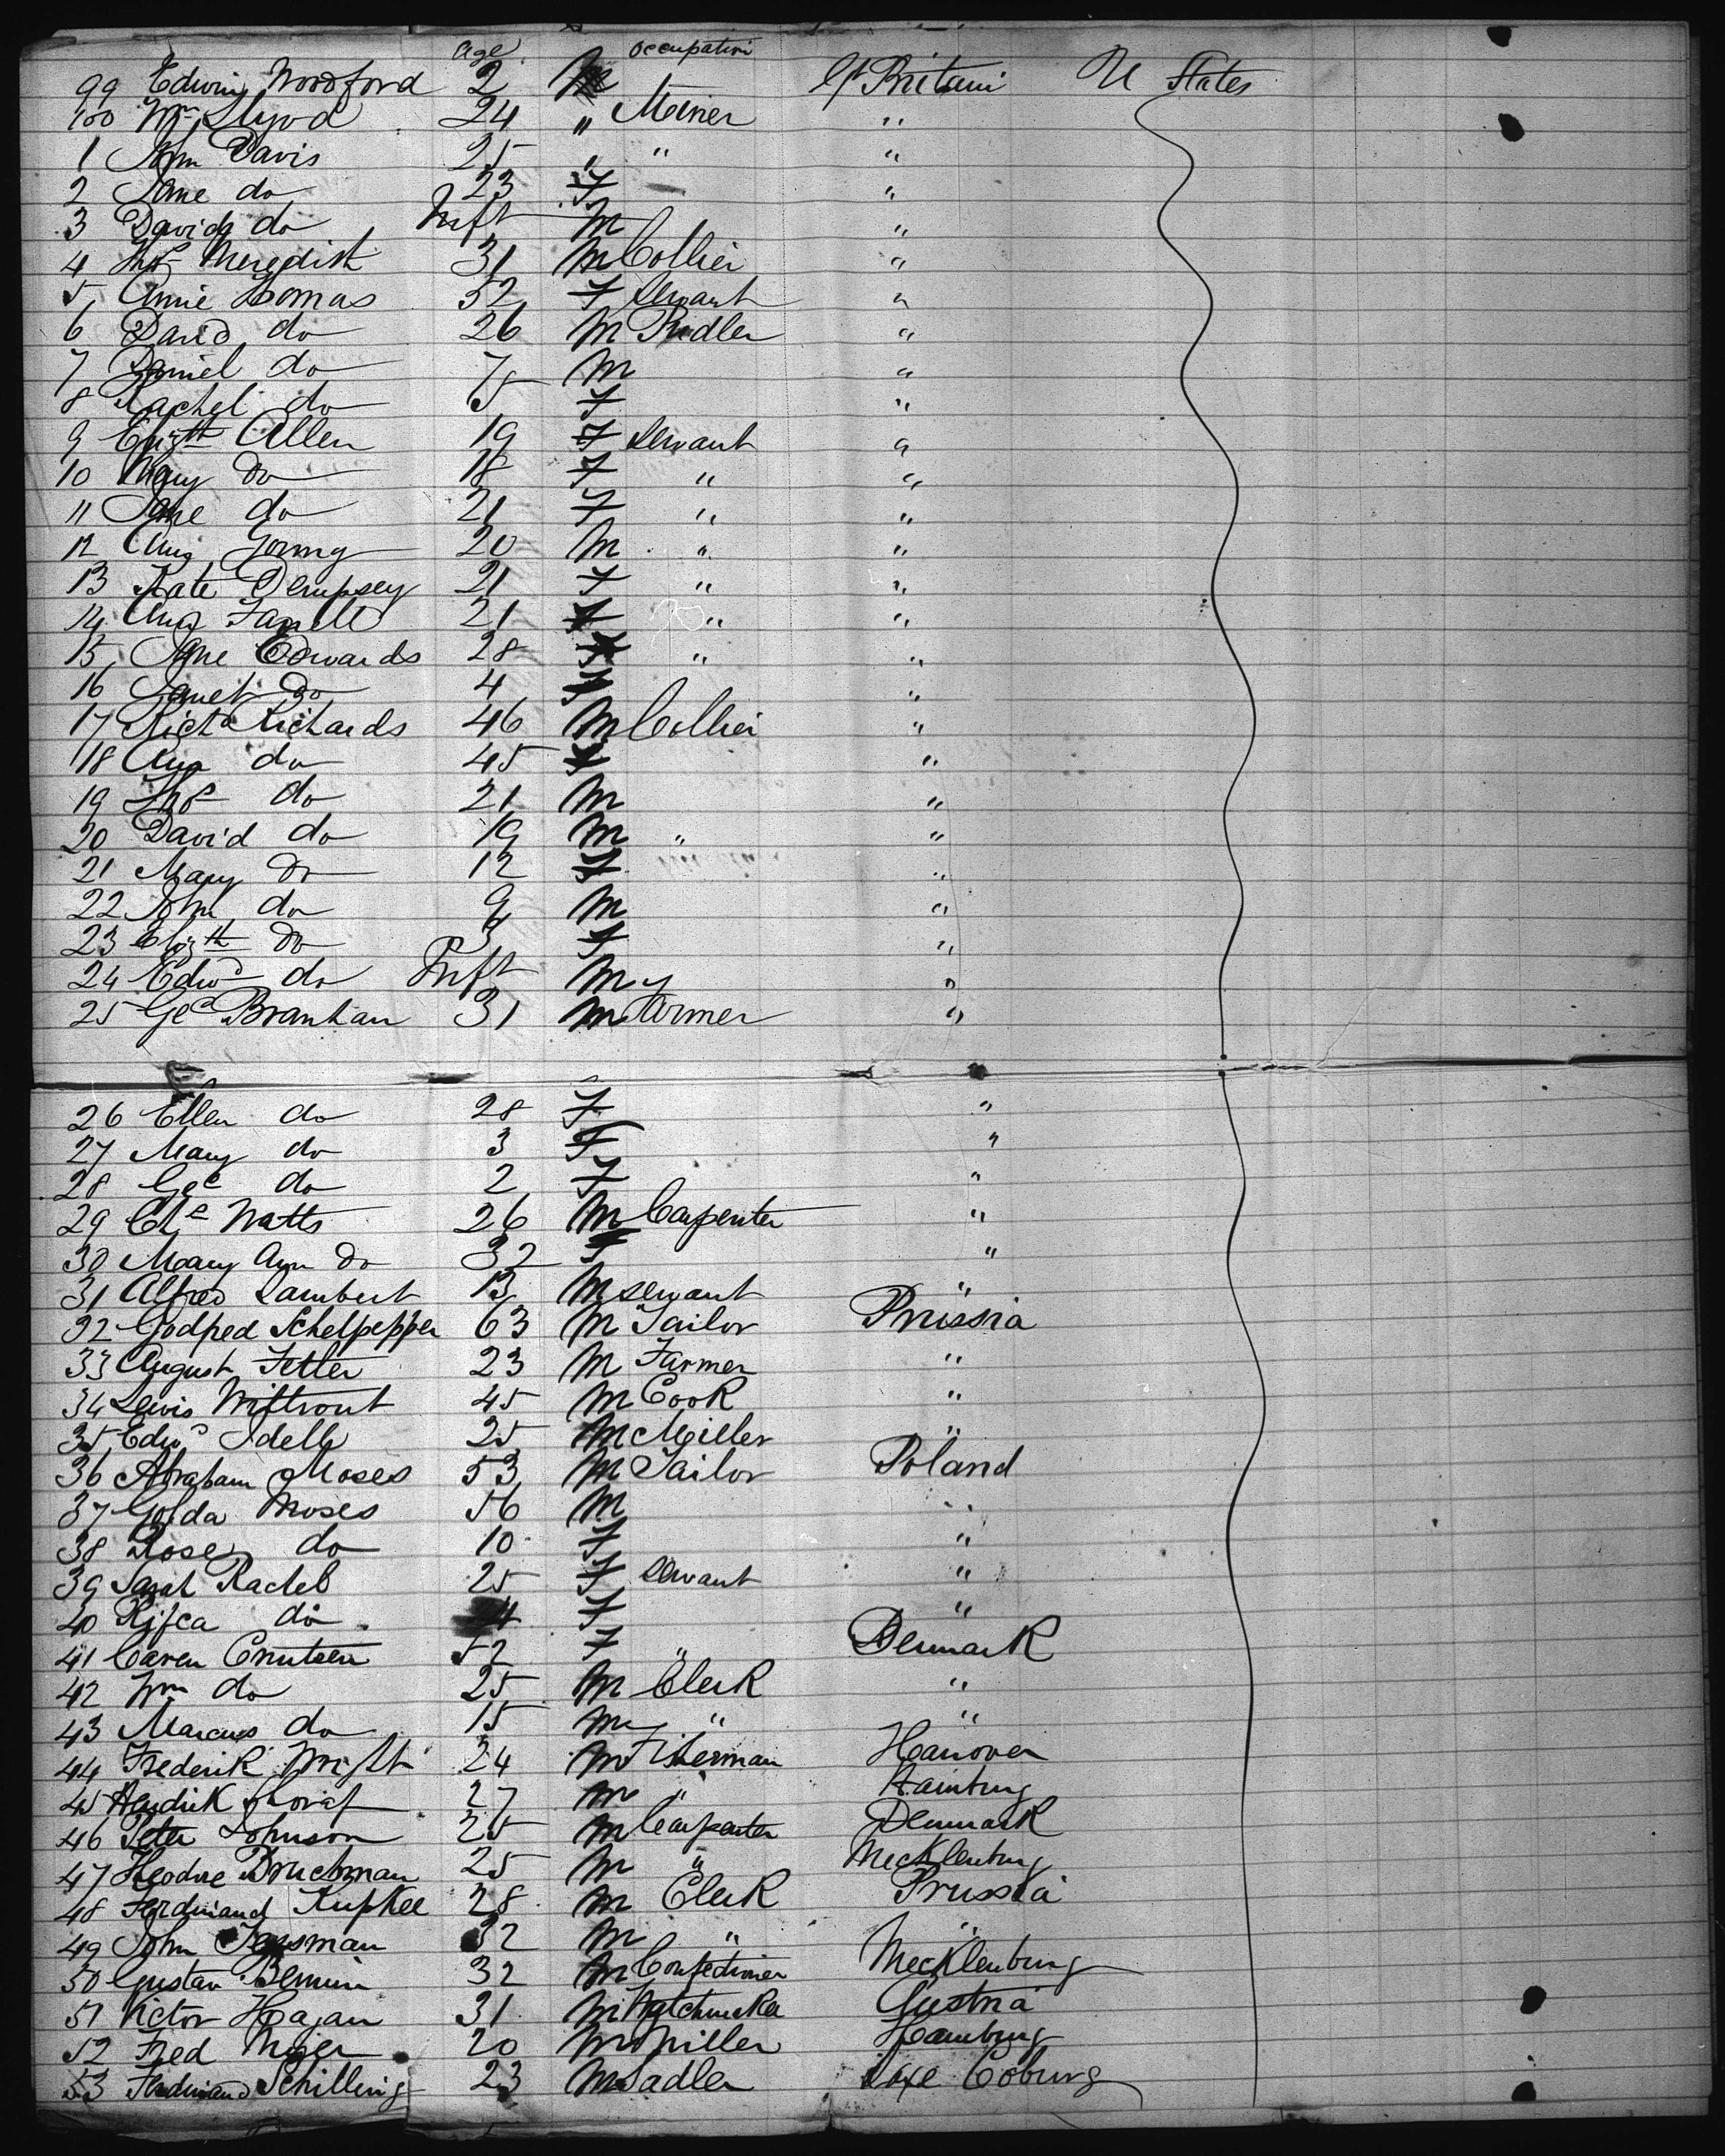 age occupation
99 Edwin Woodford 2 M Gt Britain U States
100 Wm Lloyd 24 " Meiner "
1 John Davis 25 " " "
2 Jane do 23 F "
3 David do Inft M "
4 Thos Meredith 31 M Collier "
5 Annie Thomas 32 F Servant "
6 David do 26 M Pudler "
7 Daniel do 7 M "
8 Rachel do 5 F "
9 Elizth Allen 19 F Servant "
10 Mary do 18 F " "
11 Jane do 21 F " "
12 Young 20 M " "
13 Kate Dempsey 21 F " "
14 Ann 21 F " "
15 Jane Edwards 28 F " "
16 Janet do 4 F "
17 Richd Richards 46 M Collier "
18 Ann do 45 F "
19 Thos do 21 M "
20 David do 19 M " "
21 Mary do 12 F "
22 John do 9 M "
23 Elizth do F "
24 Edwd do Inft M "
25 Geo Branhan 31 M Farmer "
26 Ellen do 28 F "
27 Mary do 3 F "
28 Geo do 2 F "
29 Chs Watts 26 M Carpenter "
30 Mary Ann do 32 F "
31 Alfred Lambert 13 M Servant "
32 Godfred Schelpepper 63 M Tailor Prussia
33 August Fetter 23 M Farmer "
34 Lewis Wittrout 45 M Cook "
35 Edwd Idell 25 M Miller "
36 Abraham Moses 53 M Tailor Poland
37 Golda Moses 56 M "
38 Rose do 10 F "
39 Sarah Rachel 25 F Servant "
40 Rifca do 4 F "
41 Caren Cnutsen 52 F " Denmark
42 Wm do 25 M Clerk "
43 Marcus do 15 M " "
44 Frederik Wright 24 M Fisherman Hanover
45 Hendrik 27 M " Hamburg
46 Peter Johnson 25 M Carpenter Denmark
47 Theodore Bruchman 25 M " Mecklenburg
48 Ferdinand Kupkee 28 M Clerk Prussia
49 John Jessman 32 M " "
50 Gustav Bemin 32 M Confectioner Mecklenburg
51 Victor Hajan 31 M Watchmaker Austria
52 Fred Meier 20 M Miller Hamburg
53 Ferdinand Schilling 23 M Sadler Saxe Coburg